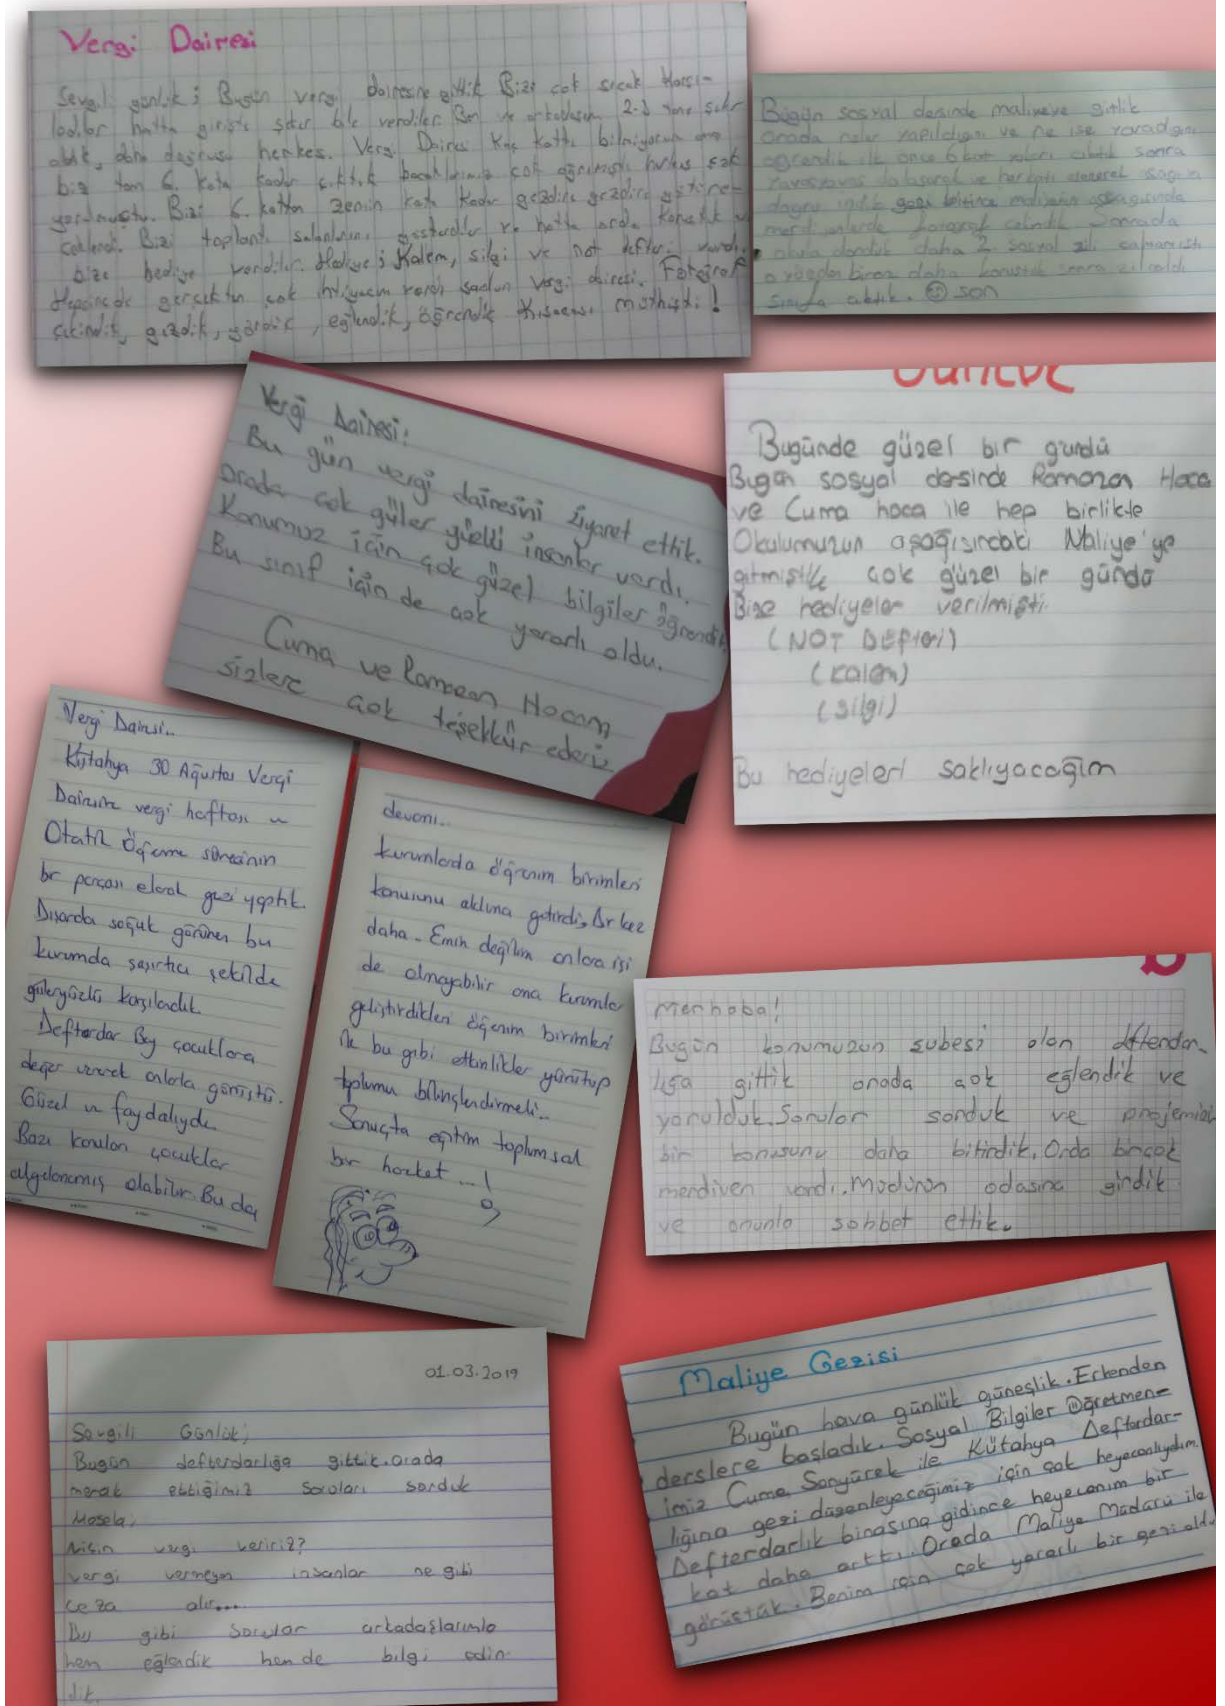 Vergi Dairesi
Sevgili günlük; Bugün vergi dairesine gittik Bizi çok sıcak karşı-
ladılar hatta girişte şeker bile verdiler Ben ve arkadaşım 2-3 tane şeker
aldık, daha doğrusu herkes. Vergi Dairesi kaç kattı bilmiyorum ama
biz tam 6. kata kadar çıktık bacaklarımız çok ağrımıştı herkes çok
yorulmuştu. Bizi 6. kattan zemin kata kadar gezdire gezdire götüre-
ceklerdi. Bizi toplantı salonlarını gösterdiler ve hatta orda konuştuk ve
bize hediye verdiler. Hediye; Kalem, silgi ve not defteri vardı.
Hepsine de gerçekten çok ihtiyacım vardı sadun vergi dairesi. Fotoğraf
çekindik, gezdik, gördük, eğlendik, öğrendik Kısacası müthişti!
Bügün sosyal desinde maliyeye gitlik
orada neler yapıldığını ve ne ise yaradığını
ögrendik ilk önce 6 kat yoları cıktık sonra
dogru indik gezi bitince maliyenin aşağısında
merdivenlerde fotograf cekindik Sonrada
okula dönduk daha 2. sosyal zili calmamıstı
biraz daha konustuk sonra zil caldı
sınıfa cıktık. son
Vergi Dairesi:
Bu gün vergi dairesini ziyaret ettik.
Orada çok güler yüzlü insanlar vardı.
Konumuz için çok güzel bilgiler öğrendik
Bu sınıf için de çok yararlı oldu.
Cuma ve Ramazan Hocam
sizlere çok teşekkür ederiz
Bugünde güzel bir gündü
Bugün sosyal dersinde Ramazan Hoca
ve Cuma hoca ile hep birlikte
Okulumuzun aşağısındaki Maliye'ye
gitmiştik çok güzel bir gündü
Bize hediyeler verilmişti.
(NOT DEfteri)
(Kalem)
(silgi)
Bu hediyeleri saklıyacağım
Vergi Dairesi...
Kütahya 30 Ağustos Vergi
Dairesine vergi haftası ve
Otantik Öğrenme sürecinin
bir parçası olarak gezi yaptık.
Dışarda soğuk görünen bu
kurumda şaşırtıcı şekilde
güleryüzlü karşılandık.
Defterdar Bey çocuklara
değer vererek onlarla görüştü.
Güzel ve faydalıydı.
Bazı konular çocuklar
algılanamış olabilir. Bu da
devamı...
kurumlarda öğrenim birimleri
konusunu aklıma getirdi, bir kez
daha. Emin değilim onların işi
de olmayabilir ama kurumlar
geliştirdikleri öğrenim birimleri
ile bu gibi etkinlikler yürütüp
toplumu bilinçlendirmeli...
Sonuçta eğitim toplumsal
bir hareket...!
Merhaba!
Bugün konumuzun şubesi olan defterdar-
lığa gittik orada çok eğlendik ve
yorulduk. Sorular sorduk ve projemizin
bir konusunu daha bitirdik. Orda birçok
merdiven vardı. Müdürün odasına girdik
ve onunla sohbet ettik.
01.03.2019
Sevgili Günlük;
Bugün defterdarlığa gittik. Orada
merak ettiğimiz soruları sorduk
Mesela;
Niçin vergi veririz?
vergi vermeyen insanlar ne gibi
ceza alır....
Bu gibi sorular arkadaşlarımla
hem eğlendik hemde bilgi edin-
dik.
Maliye Gezisi
Bugün hava günlük güneşlik. Erkenden
derslere başladık. Sosyal Bilgiler Öğretmen-
imiz Cuma Sarıyürek ile Kütahya Defterdar-
lığına gezi düzenleyeceğimiz için çok heyecanlıydım.
Defterdarlık binasına gidince heyecanım bir
kat daha arttı. Orada Maliye Müdürü ile
görüştük. Benim için çok yararlı bir gezi oldu.